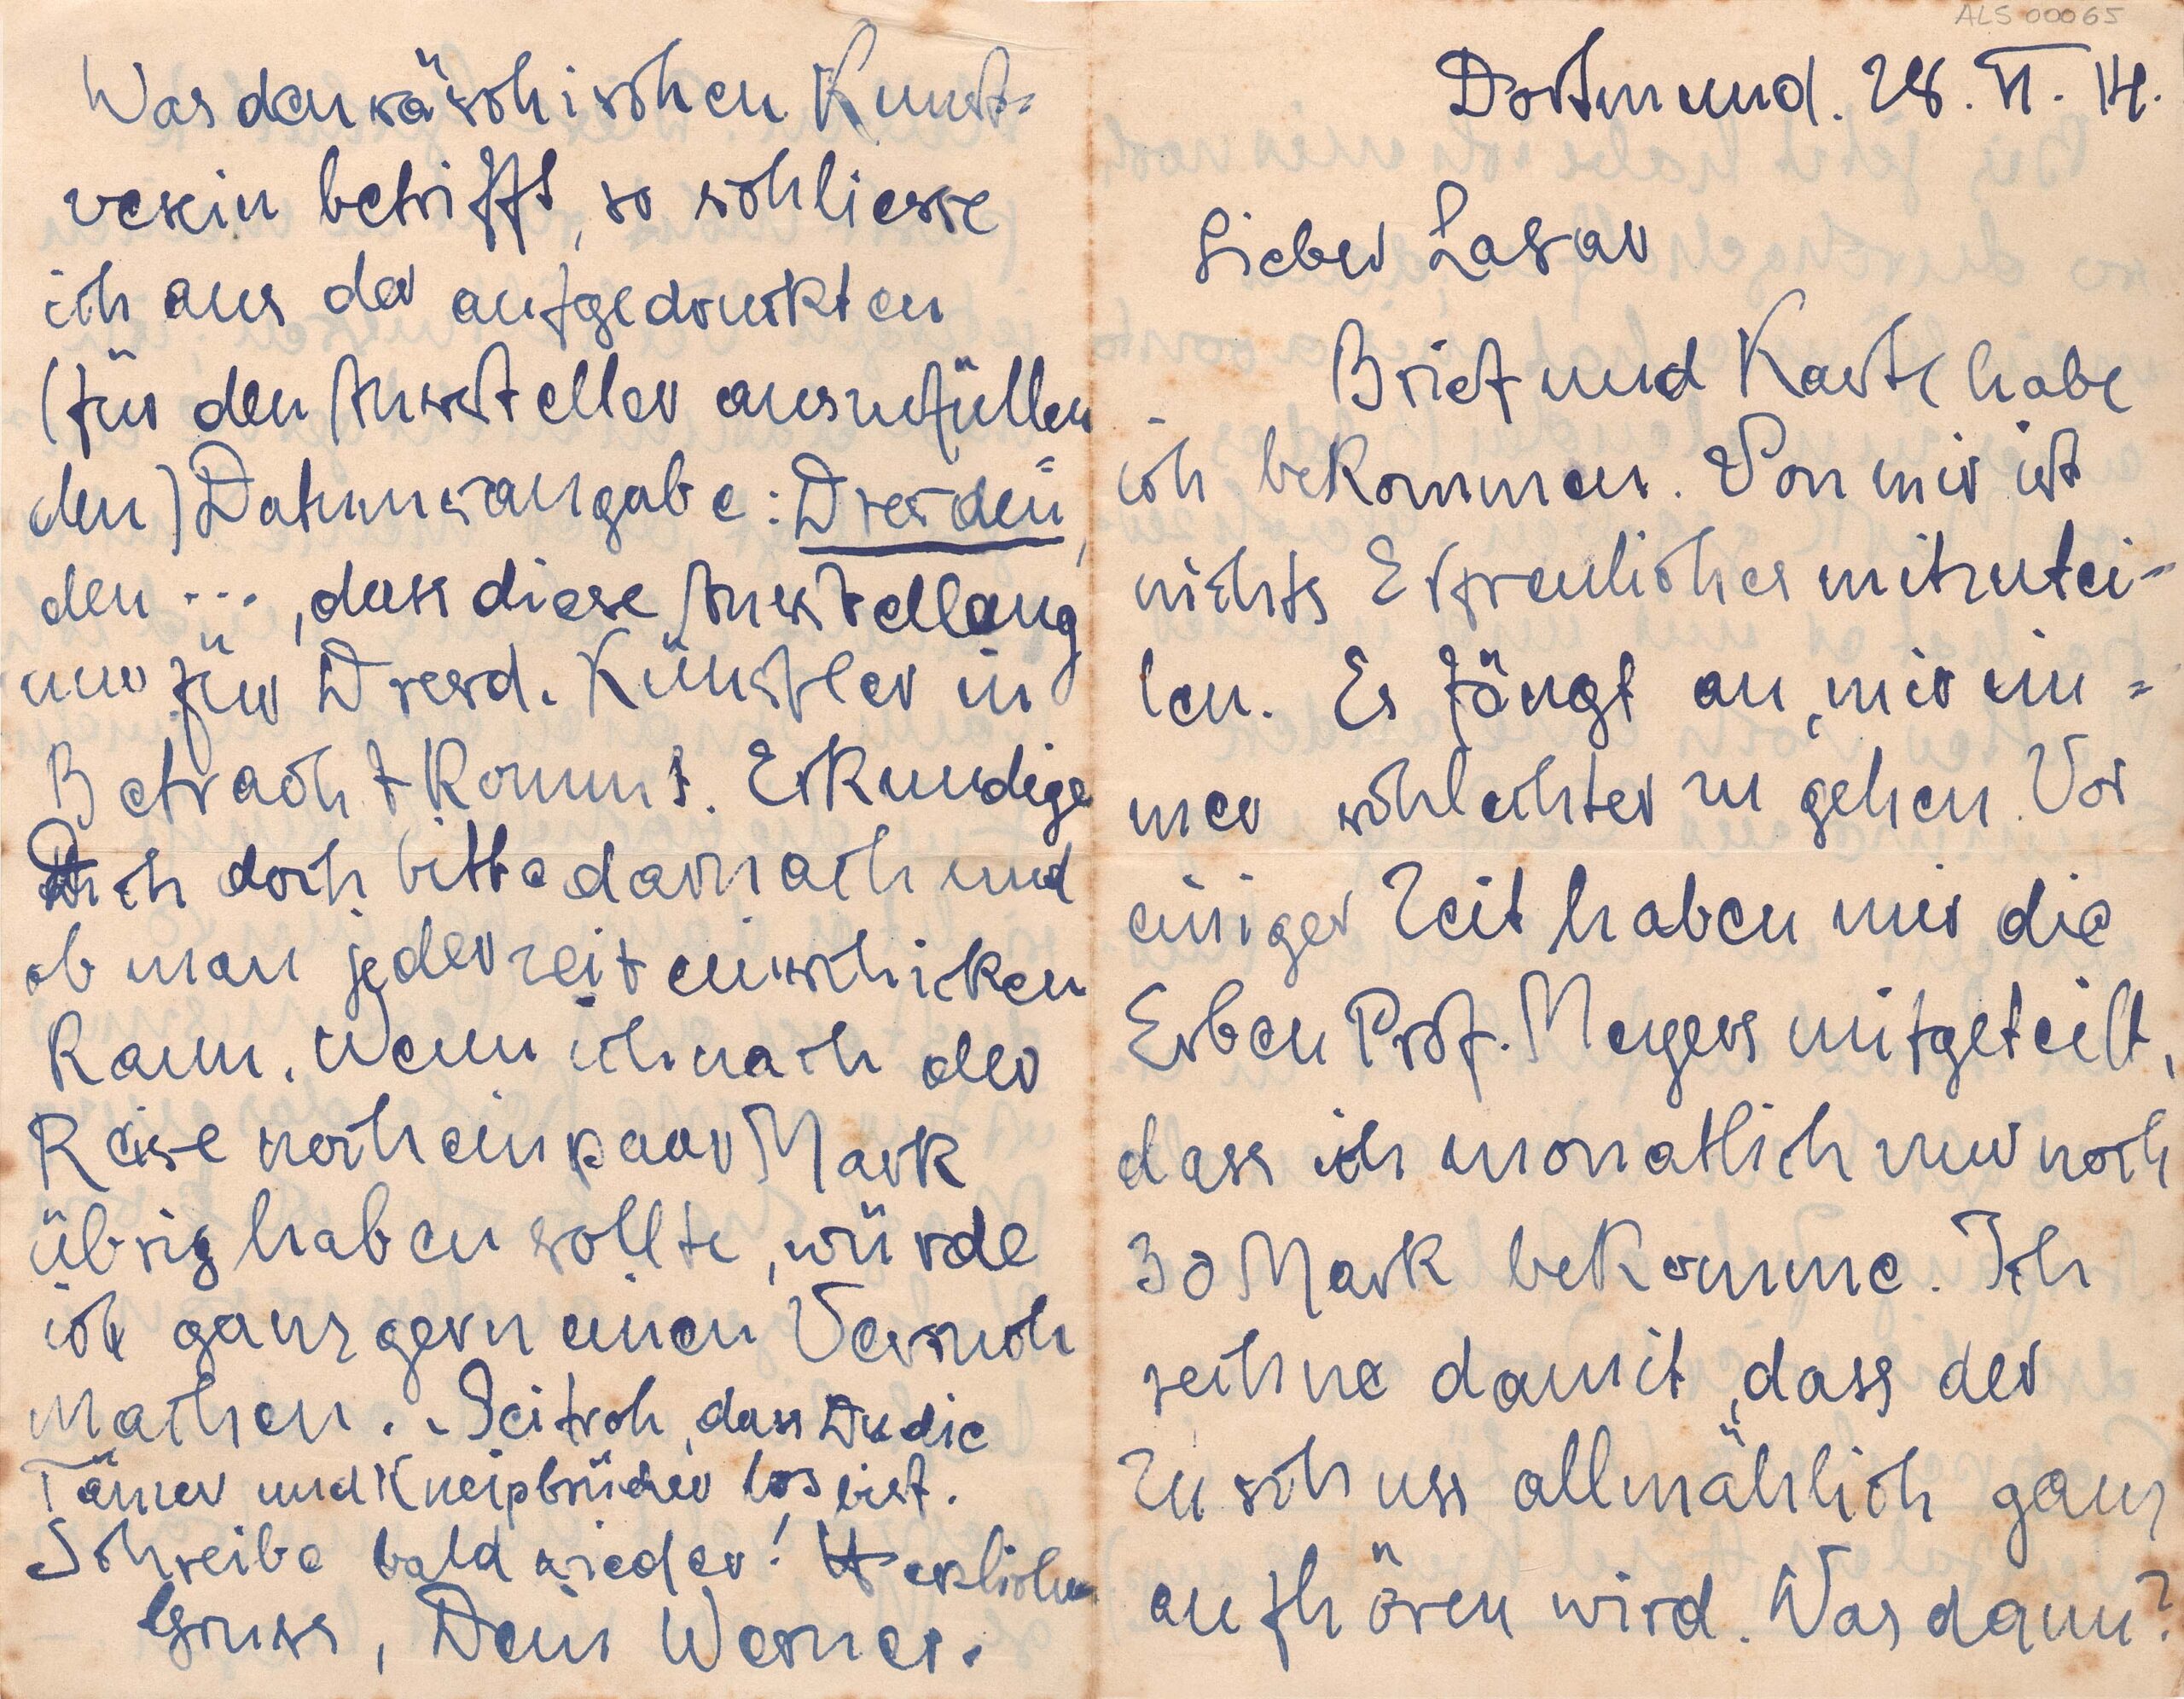 ALS 00065
Dortmund. 28. VI. 14.
Lieber Lasar
Brief und Karte habe
ich bekommen. Von mir ist
nichts Erfreuliches mitzutei-
len. Es fängt an, mir im=
mer schlechter zu gehen. Vor
einiger Zeit haben mir die
Erben Prof. Meyers mitgeteilt,
dass ich monatlich nur noch
30 Mark bekomme. Ich
rechne damit, dass der
Zuschuss allmählich ganz
aufhören wird. Was dann?
Was den sächsischen Kunst=
verein betrifft, so schliesse
ich aus der aufgedruckten
(für den Aussteller auszufüllen=
den) Datumsangabe: Dresden,
den ..., dass diese Ausstellung
nur für Dresd. Künstler in
Betracht kommt. Erkundige
Dich doch bitte darnach und
ob man jederzeit einschicken
kann. Wenn ich nach der
Reise noch ein paar Mark
übrig haben sollte, würde
ich ganz gern einen Versuch
machen. Sei froh, dass Du die
und Kneipbrüder los bist.
Schreibe bald wieder! Herzlichen
Gruss, Dein Werner.